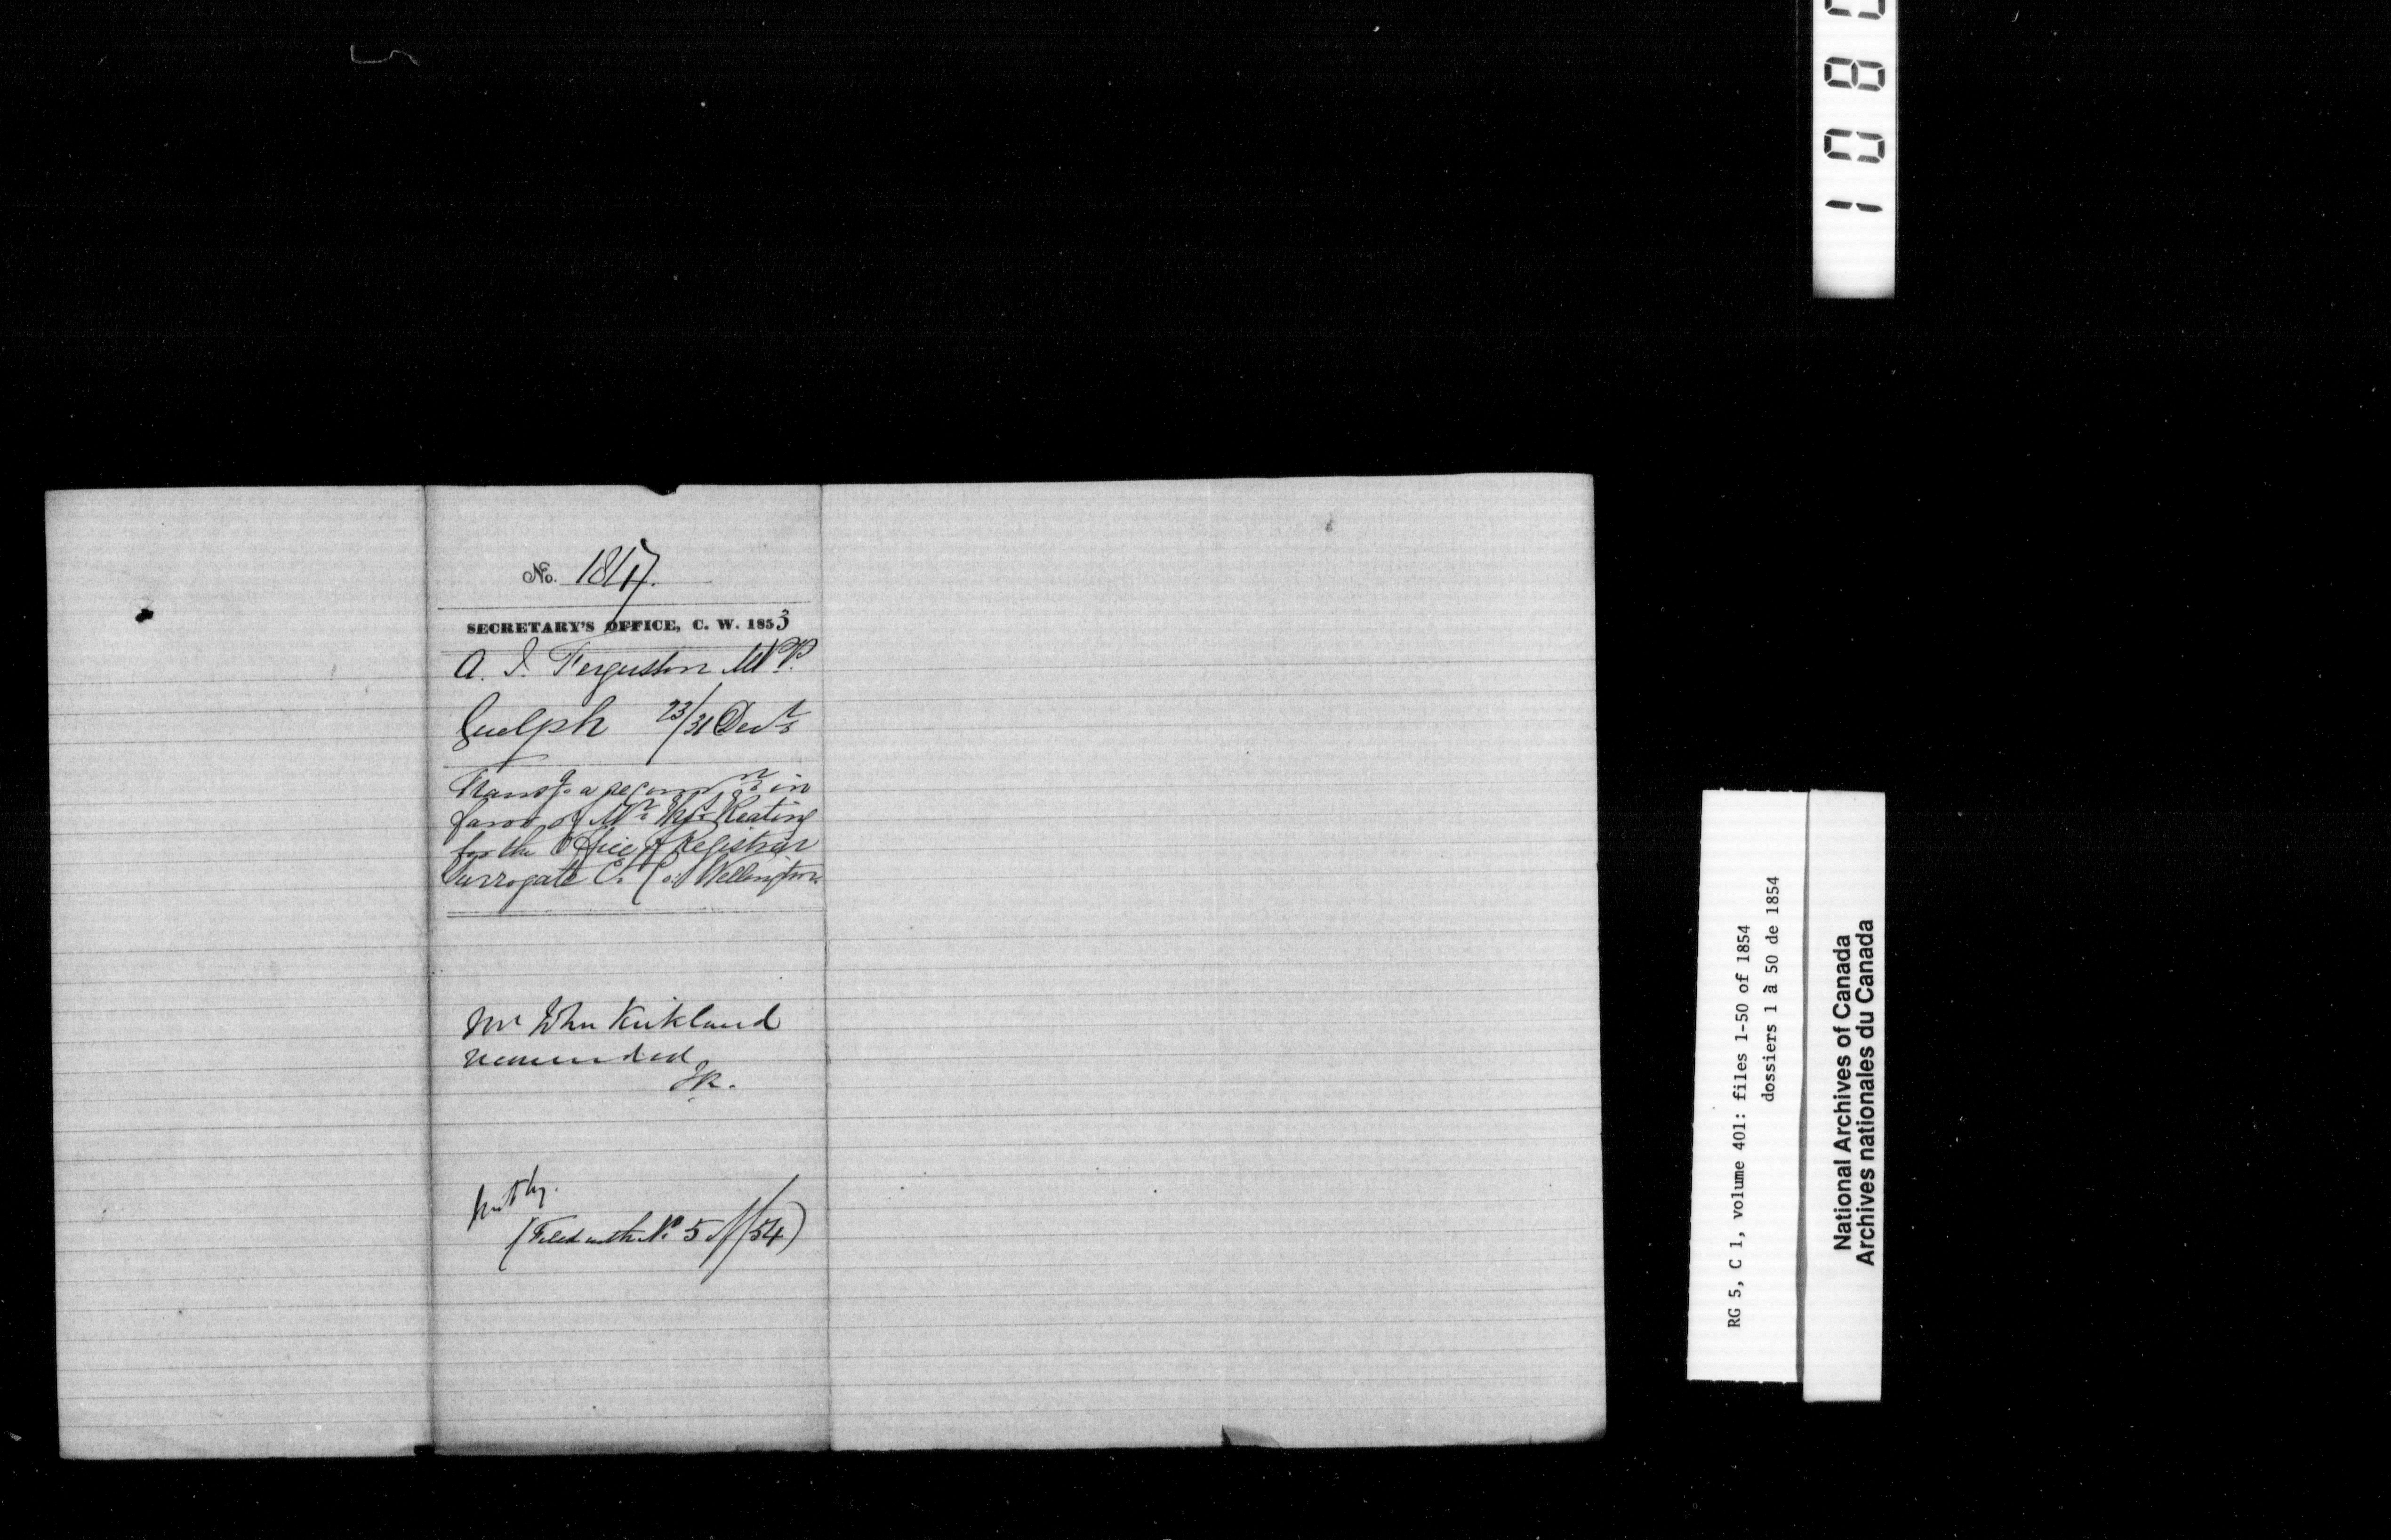 No. 1847.
SECRETARY'S OFFICE, C. W. 1853
A. J. Fergusson M.P.P.
Guelph 23/31 Decr
Transg. a recommn in
favor of Mr Wm Keating
for the Office of Registrar
Surrogate C. Co: Wellington
Mr John Kirkland
recommended
JR.
(Filed with No 5 of /54)
1 0 8 0
RG 5, C 1, volume 401: files 1-50 of 1854
dossiers 1 à 50 de 1854
National Archives of Canada
Archives nationales du Canada